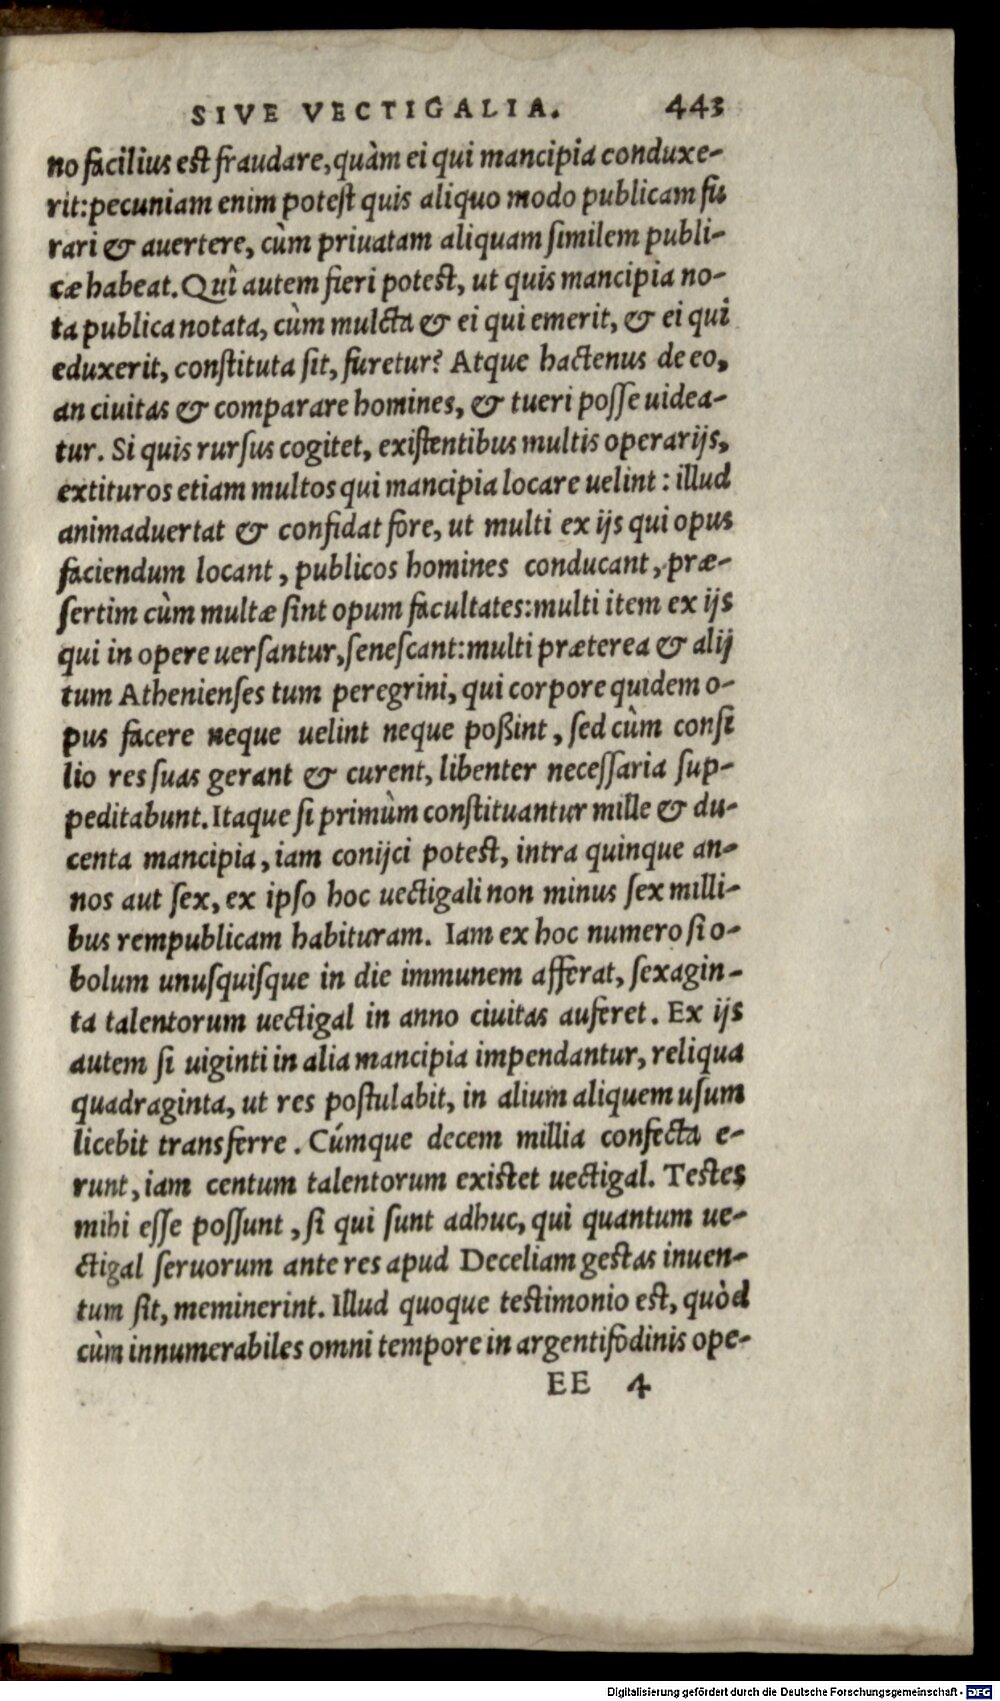 SIVE VECTIGALIA. 443
no facilius est fraudare, quàm ei qui mancipia conduxe-
rit: pecuniam enim potest quis aliquo modo publicam fu
rari & auertere, cùm priuatam aliquam similem publi-
cæ habeat. Quî autem fieri potest, ut quis mancipia no-
ta publica notata, cùm mulcta & ei qui emerit, & ei qui
eduxerit, constituta sit, furetur? Atque hactenus de eo,
an ciuitas & comparare homines, & tueri posse uidea-
tur. Si quis rursus cogitet, existentibus multis operarijs,
extituros etiam multos qui mancipia locare uelint: illud
animaduertat & confidat fore, ut multi ex ijs qui opus
faciendum locant, publicos homines conducant, præ-
sertim cùm multæ sint opum facultates: multi item ex ijs
qui in opere uersantur, senescant: multi præterea & alij
tum Athenienses tum peregrini, qui corpore quidem o-
pus facere neque uelint neque poßint, sed cùm consi
lio res suas gerant & curent, libenter necessaria sup-
peditabunt. Itaque si primùm constituantur mille & du-
centa mancipia, iam conijci potest, intra quinque an-
nos aut sex, ex ipso hoc uectigali non minus sex milli-
bus rempublicam habituram. Iam ex hoc numero si o-
bolum unusquisque in die immunem afferat, sexagin-
ta talentorum uectigal in anno ciuitas auferet. Ex ijs
autem si uiginti in alia mancipia impendantur, reliqua
quadraginta, ut res postulabit, in alium aliquem usum
licebit transferre. Cúmque decem millia confecta e-
runt, iam centum talentorum existet uectigal. Testes
mihi esse possunt, si qui sunt adhuc, qui quantum ue-
ctigal seruorum ante res apud Deceliam gestas inuen-
tum sit, meminerint. Illud quoque testimonio est, quòd
cùm innumerabiles omni tempore in argentifodinis ope-
EE 4
Digitalisierung gefördert durch die Deutsche Forschungsgemeinschaft - DFG